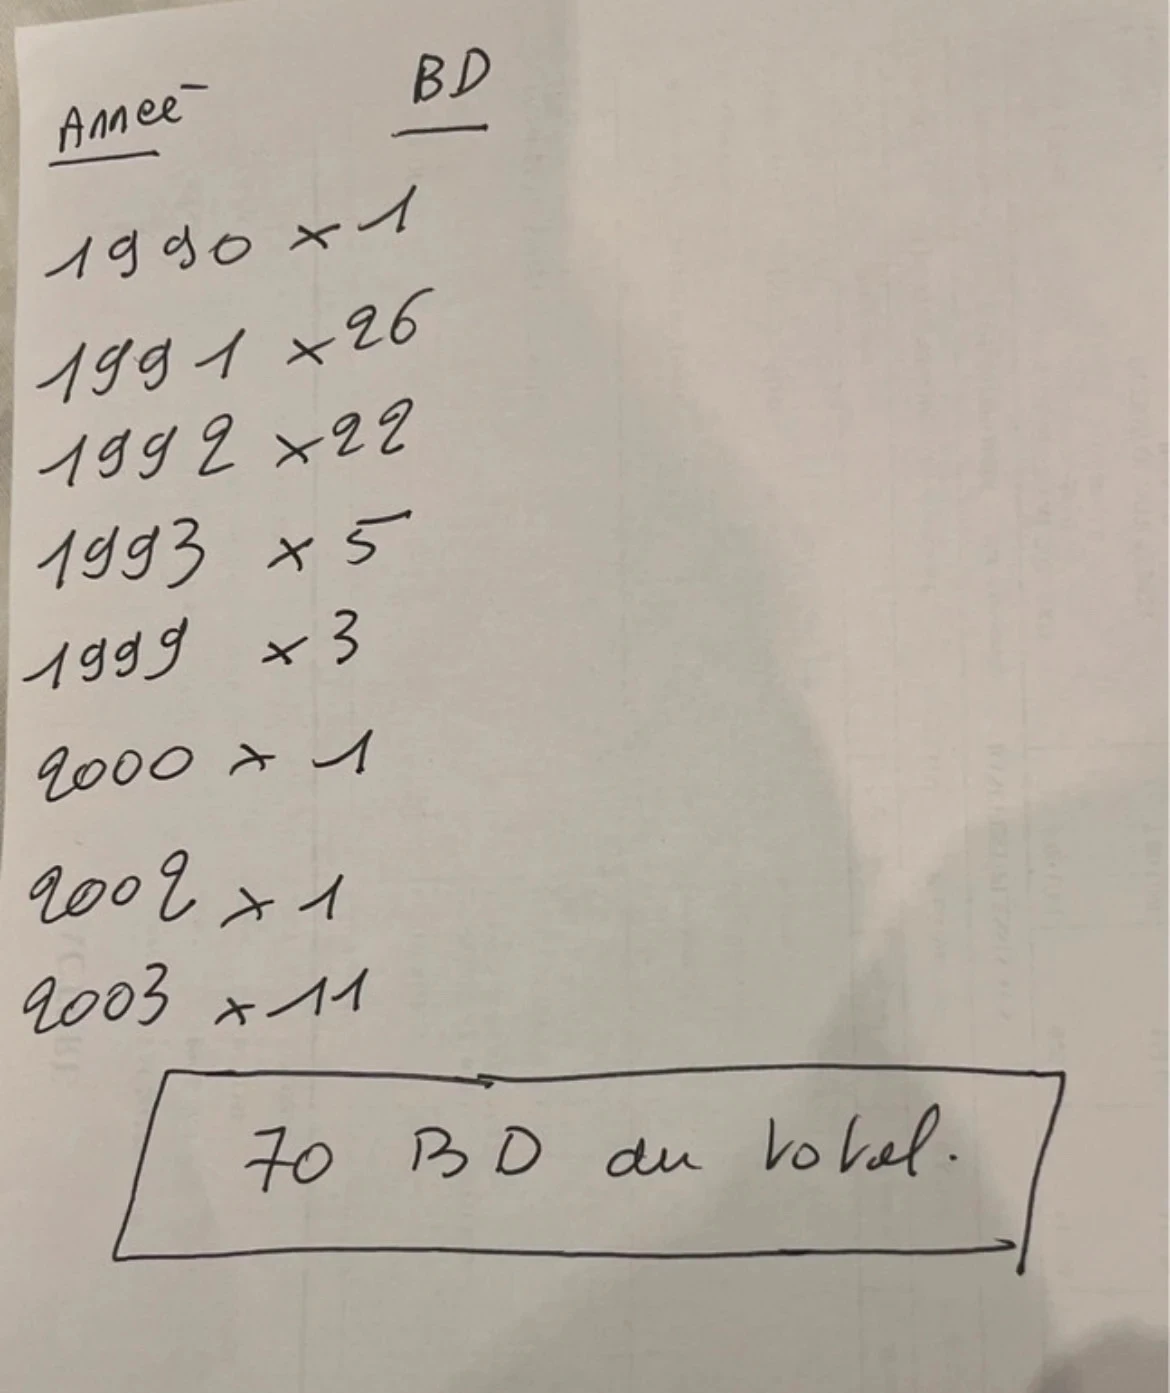 Anneé BD
1990 x 1
1991 x 26
1992 x 22
1993 x 5
1999 x 3
2000 x 1
2002 x 1
2003 x 11
70 BD au total.